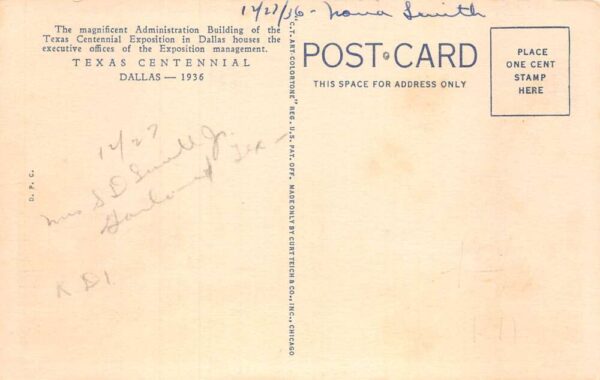 12/27/36 - Nona Smith
The magnificent Administration Building of the
Texas Centennial Exposition in Dallas houses the
executive offices of the Exposition management.
TEXAS CENTENNIAL
DALLAS — 1936
D. P. C.
"C.T. ART-COLORTONE" REG. U.S. PAT. OFF. MADE ONLY BY CURT TEICH & CO., INC., CHICAGO
POST·CARD
THIS SPACE FOR ADDRESS ONLY
PLACE
ONE CENT
STAMP
HERE
12/27
Mrs S D Jr.
Tex -
K D1